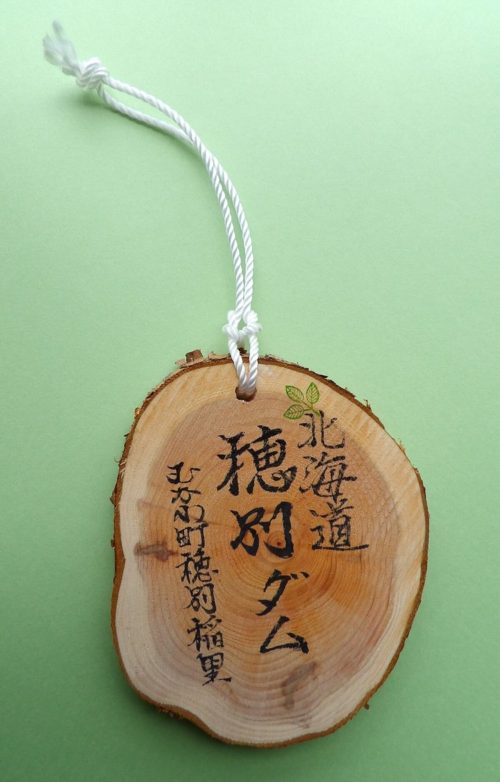 北海道
穂別ダム
むかわ町穂別稲里